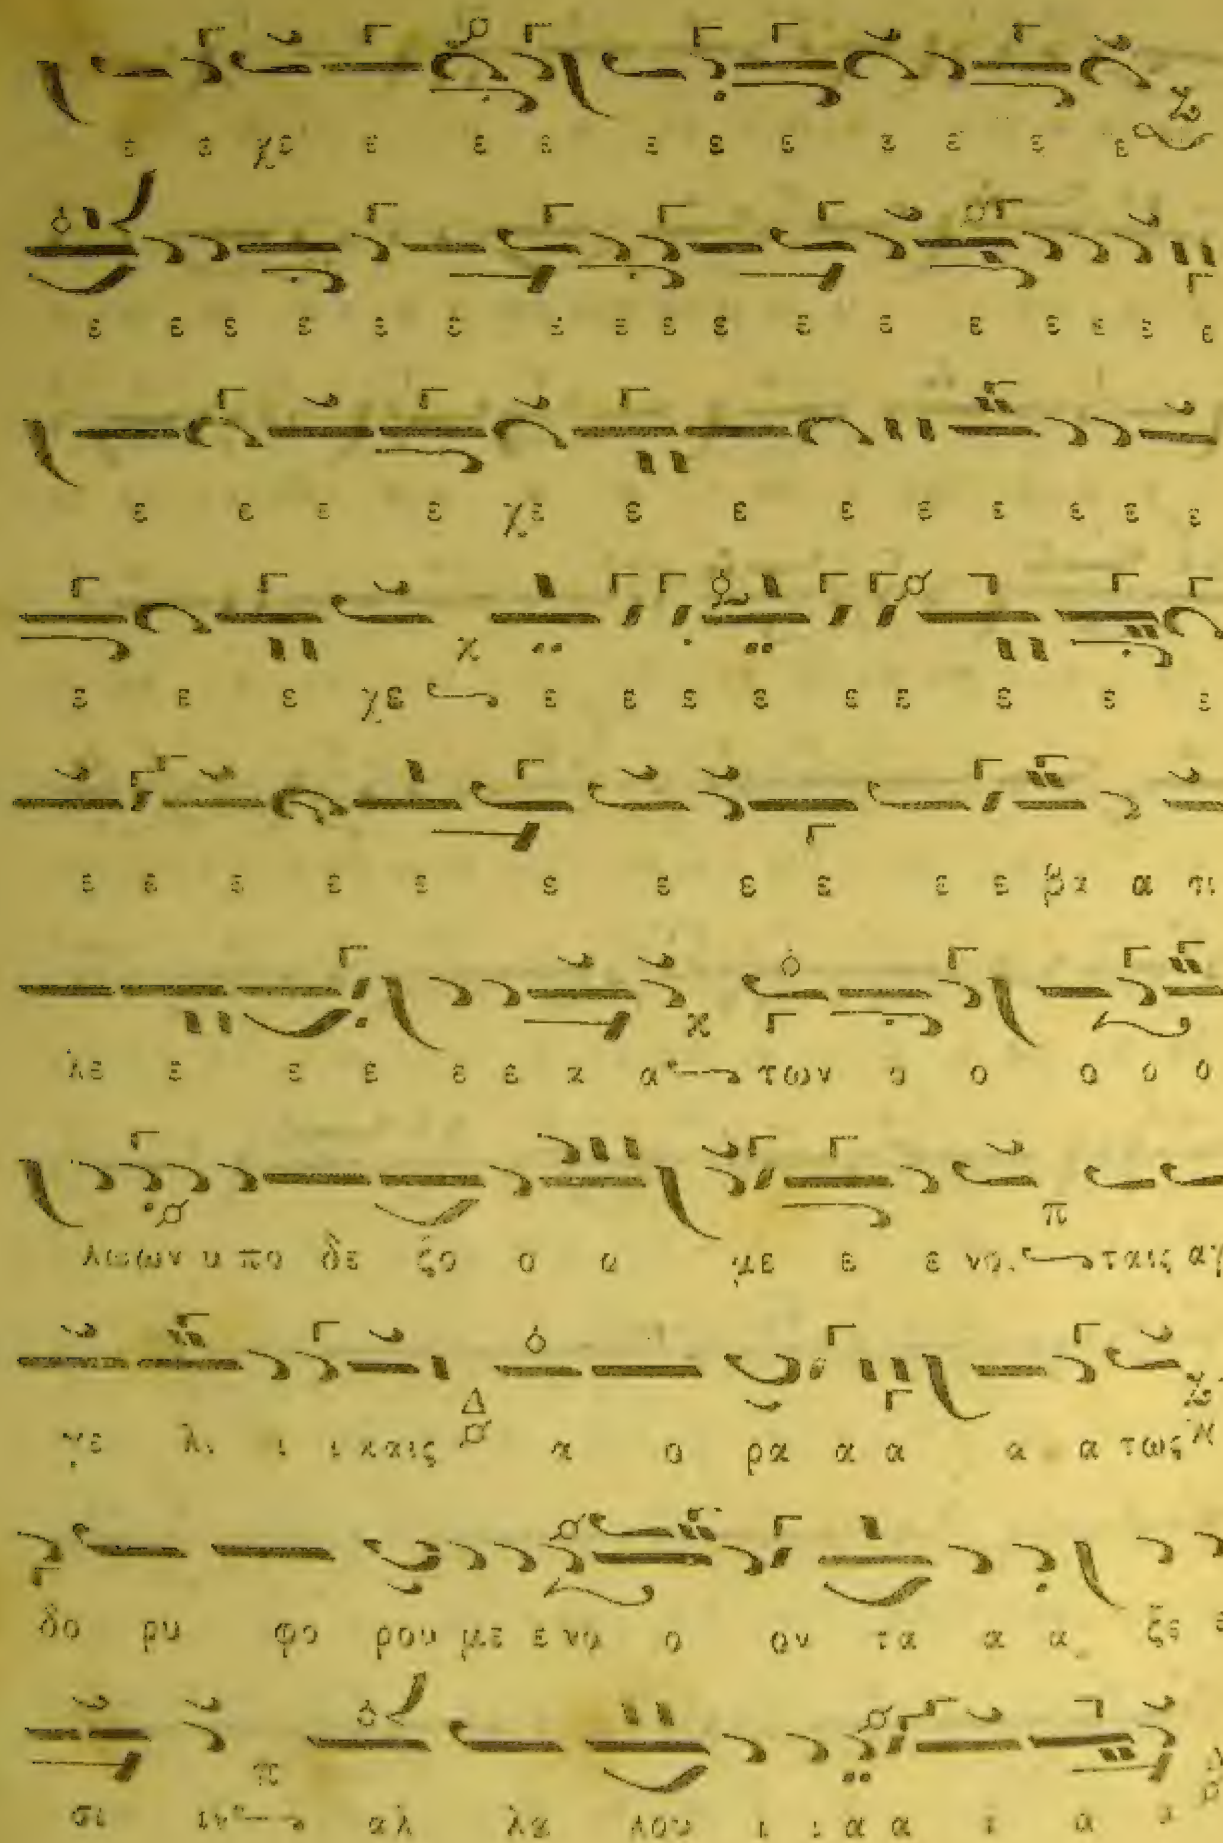 ε ε χε ε ε ε ε ε ε ε ε ε ε
ε ε ε ε ε ε ε ε ε ε ε ε ε ε ε ε ε
ε ε ε ε χε ε ε ε ε ε ε ε ε
ε ε ε χε ε ε ε ε ε ε ε ε ε
ε ε ε ε ε ε ε ε ε ε ε βα α σι
λε ε ε ε ε ε κ α των ο ο ο ο ο
λωων υ πο δε ξο ο ο με ε ε νο ταις αγ
γε λι ι ι καις α ο ρα α α α α τως
δο ρυ φο ρου με ε νο ο ον τα α α ξε ε
σι ιν αλ λη λου ι ι α α ι α